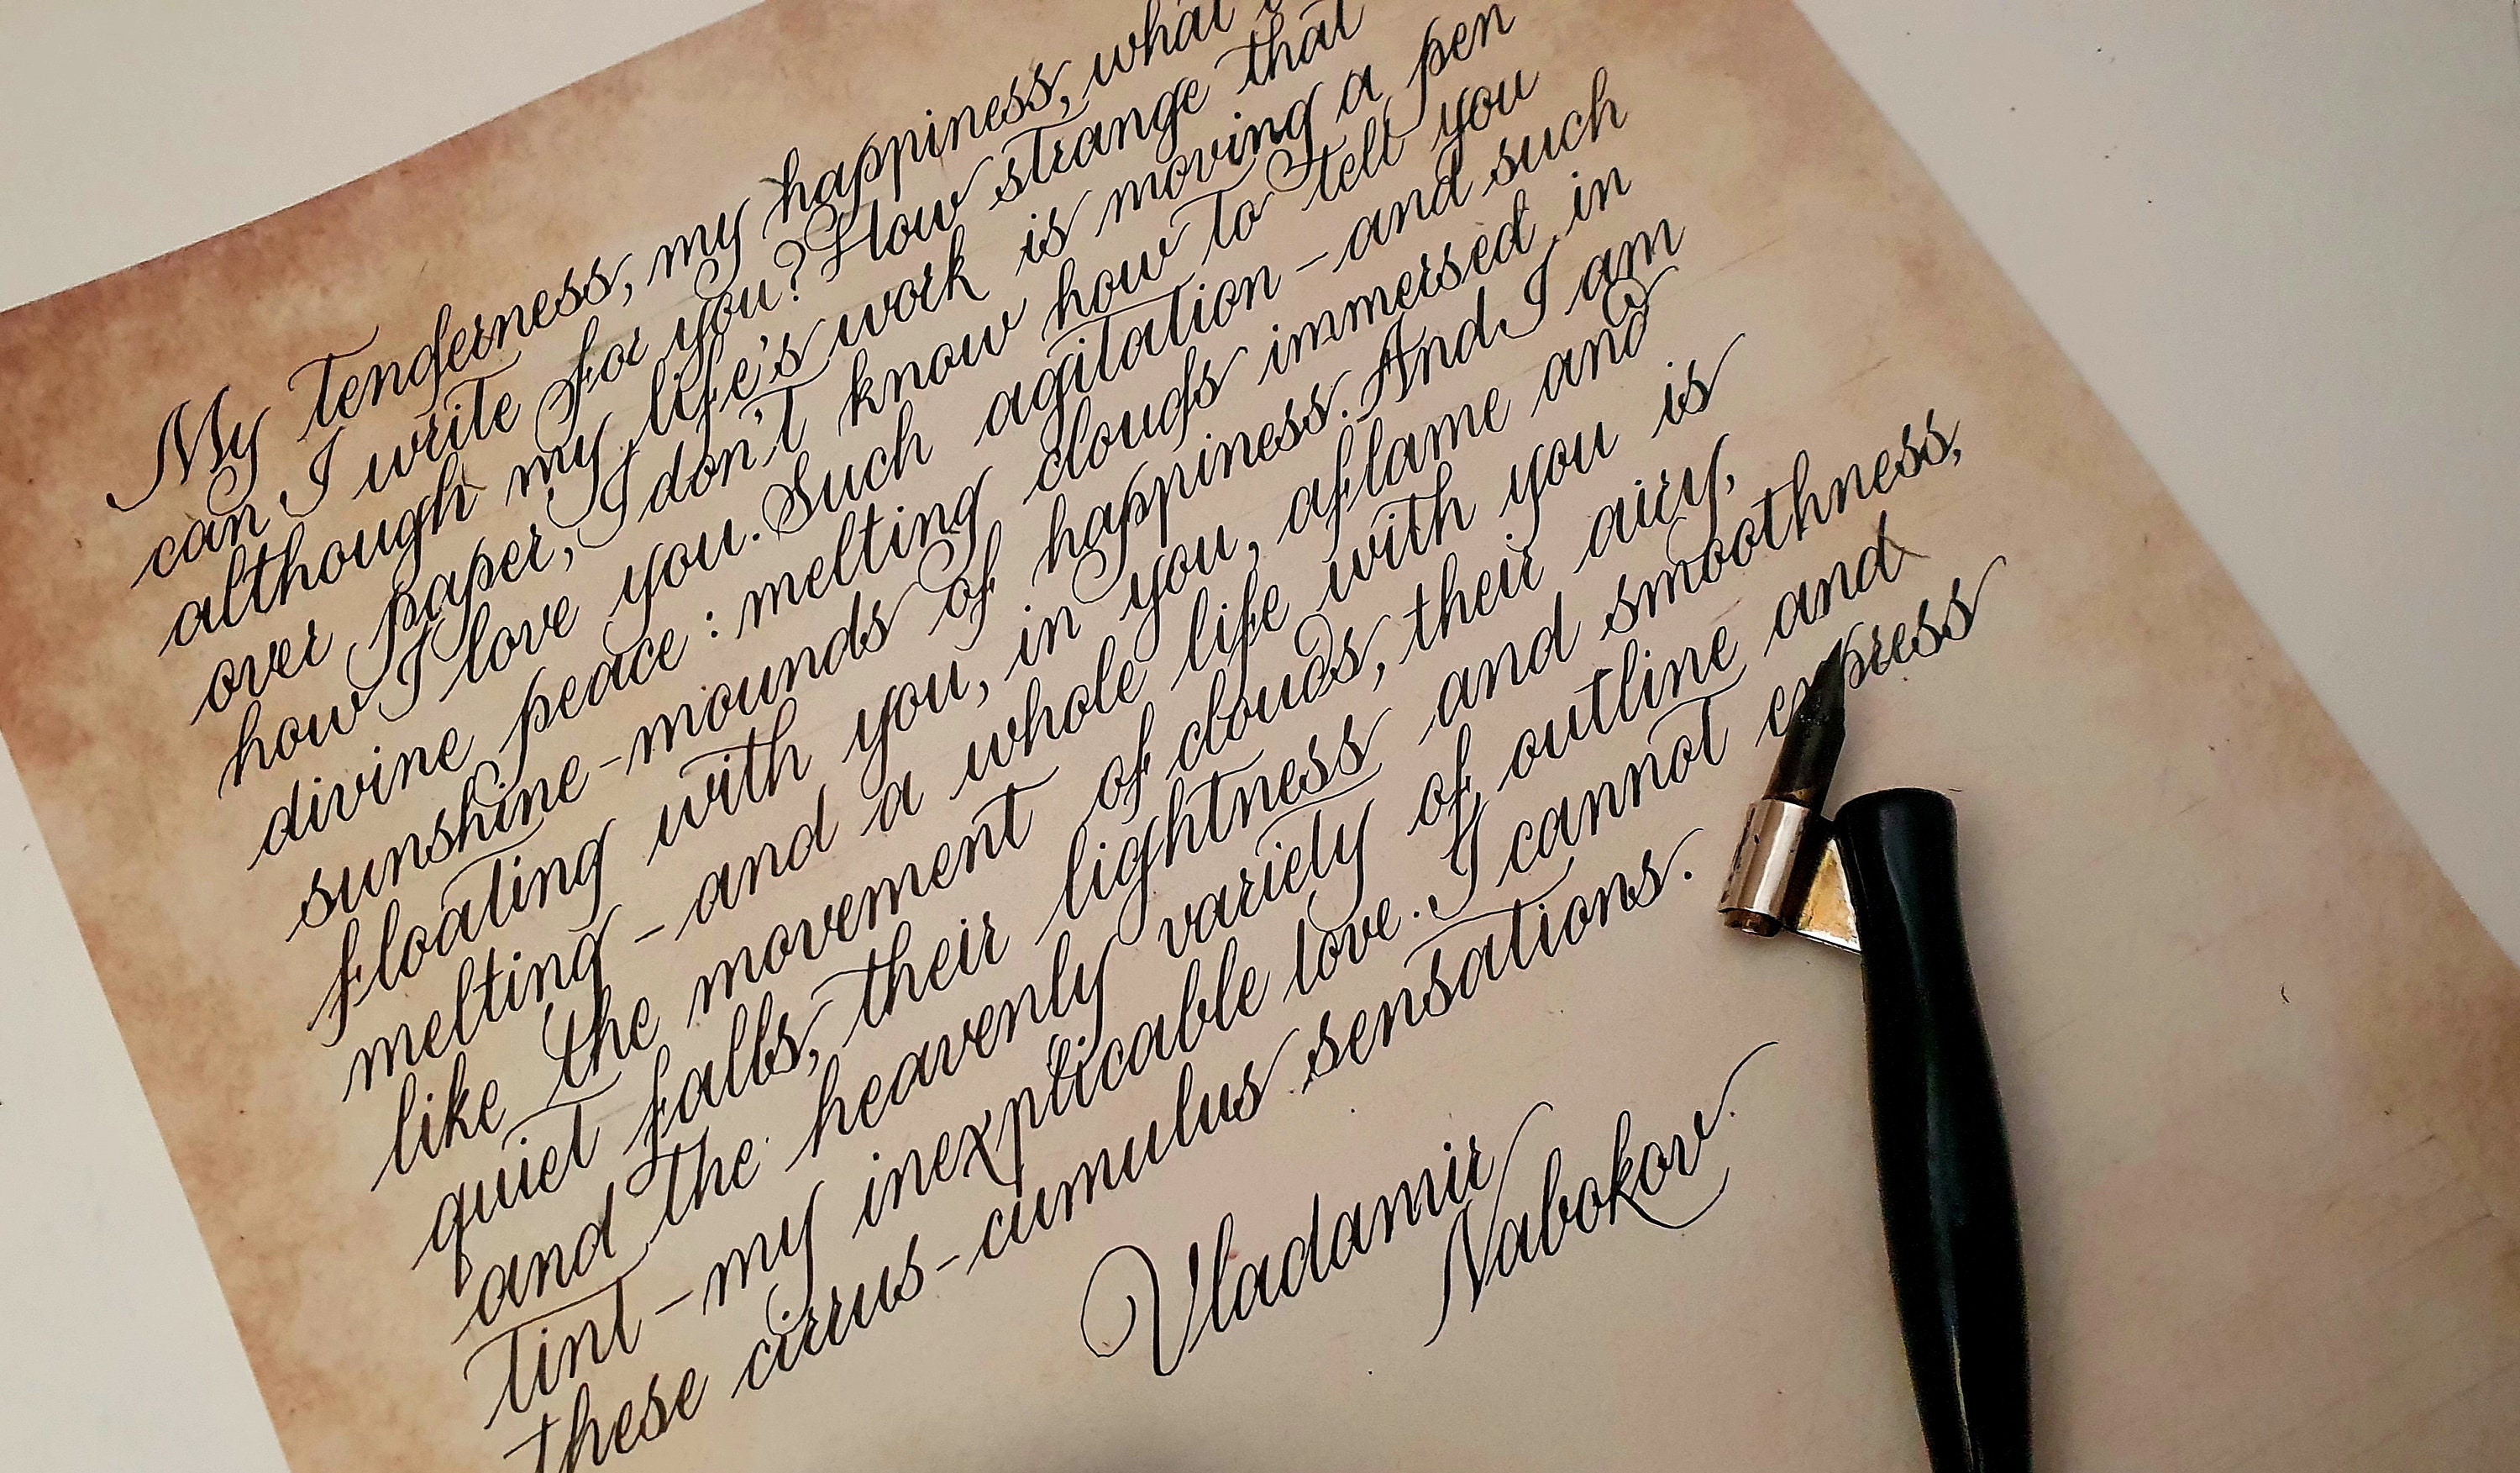 My tenderness, my happiness, what
can I write for you? How strange that
although my life's work is moving a pen
over paper, I don't know how to tell you
how I love you. Such agitation - and such
divine peace: melting clouds immersed in
sunshine - mounds of happiness. And I am
floating with you, in you, aflame and
melting - and a whole life with you is
like the movement of clouds, their airy,
quiet falls, their lightness and smoothness,
and the heavenly variety of outline and
tint - my inexplicable love. I cannot express
these cirrus-cumulus sensations.
Vladamir
Nabokov.